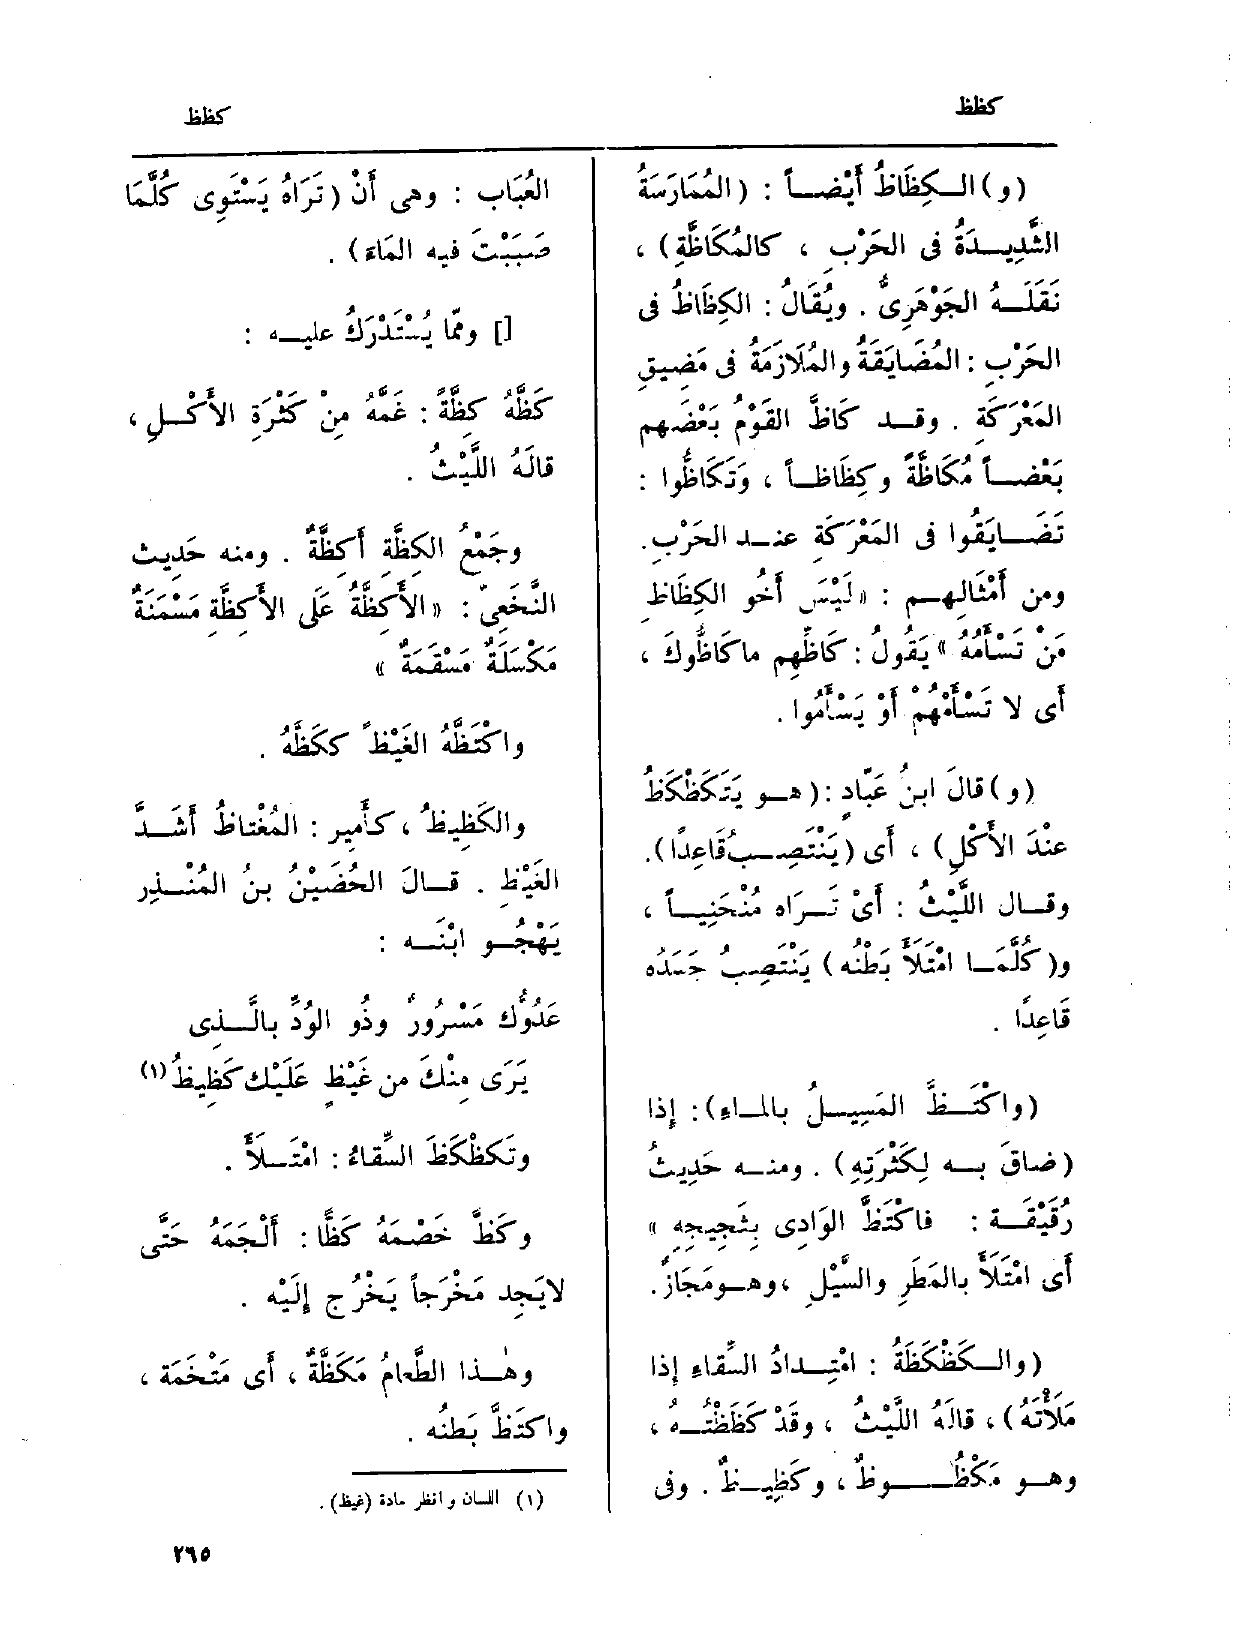 كظظ
كظظ
(و) الـكِظَاظُ أَيْضــاً : (المُمَارَسَةُ
الشَّدِيــدَةُ فى الحَرْبِ ، كالمُكَاظَّةِ) ،
نَقَلَــهُ الجَوْهَرِىُّ . ويُقَالُ : الكِظَاظُ فى
الحَرْبِ : المُضَايَقَةُ والمُلَازَمَةُ فى مَضِيقِ
المَعْرَكَةِ . وقــد كَاظَّ القَوْمُ بَعْضُهم
بَعْضــاً مُكَاظَّةً وكِظَاظــاً ، وَتَكَاظُّوا :
تَضَــايَقُوا فى المَعْرَكَةِ عنــد الحَرْبِ.
ومن أَمْثَالِهــم : «لَيْسَ أَخُو الكِظَاظ
مَنْ تَسْأَمُهُ» يَقُولُ : كَاظِّهم ماكَاظُّوكَ ،
أَى لا تَسْأَمْهُمْ أَوْ يَسْأَمُوا .
(و) قالَ ابنُ عَبّادٍ :( هــو يَتَكَظْكَظُ
عنْدَ الأَكْلِ) ، أَى (يَنْتَصِــبُ قَاعِدًا).
وقــال اللَّيْثُ : أَىْ تَــرَاه مُنْحَنِيــاً ،
و(كُلَّمَــا امْتَلَأَ بَطْنُه) يَنْتَصِبُ جَسَدُه
قَاعِدًا .
(واكْتَــظَّ المَسِيــلُ بالمــاءِ): إِذا
(ضاقَ بــه لِكَثْرَتِهِ) . ومنــه حَدِيثُ
رُقَيْقَــة : فاكْتَظَّ الوَادِى بِثَجِيجِهِ »
أَى امْتَلَأَ بالمَطَرِ والسَّيْلِ ،وهــومَجَازٌ.
(والــكَظْكَظَةُ : امْتِــدَادُ السِّقَاءِ إِذا
مَلَأْتَهُ) ، قالَهُ اللَّيْثُ ، وقَدْ كَظَظْتُــهُ ،
وهــو مَكْظُــوظٌ ، وكَظِيــظٌ . وفى
العُبَاب : وهى أَنْ (تَرَاهُ يَسْتَوِى كُلَّمَا
صَبَبْتَ فيه المَاءَ) .
[] وممّا يُسْتَدْرَكُ عليــه :
كَظَّهُ كِظَّةً : غَمَّهُ مِنْ كَثْرَةِ الأَكْــلِ ،
قالَهُ اللَّيْثُ .
وجَمْعُ الكِظَّةِ أَكِظَّةٌ . ومنه حَدِيث
النَّخَعِىّ : «الأَكِظَّةُ عَلَى الأَكِظَّةِ مَسْمَنَةٌ
مَكْسَلَةٌ مَسْقَمَةٌ »
واكْتَظَّهُ الغَيْظُ ككَظَّهُ .
والكَظِيظُ ، كأَمِيرٍ : المُغْتاظُ أَشَــدَّ
الغَيْظِ . قــالَ الحُضَيْنُ بنُ المُنْــذِر
يَهْجُــو ابْنَــه :
عَدُوُّكَ مَسْرُورٌ وذُو الوُدِّ بالَّــذِى
يَرَى مِنْكَ من غَيْظٍ عَلَيْك كَظِيظُ(١)
وتَكَظْكَظَ السِّقَاءُ : امْتَــلأَ .
وكَظَّ خَصْمَهُ كَظًّا : أَلْجَمَهُ حَتَّى
لايَجِد مَخْرَجاً يَخْرُج إِلَيْه .
وهــذا الطَّعامُ مَكَظَّةٌ ، أَى مَتْخَمَة ،
واكتَظَّ بَطنُه .
(١) اللسان وانظر مادة (غيظ) .
٢٦٥